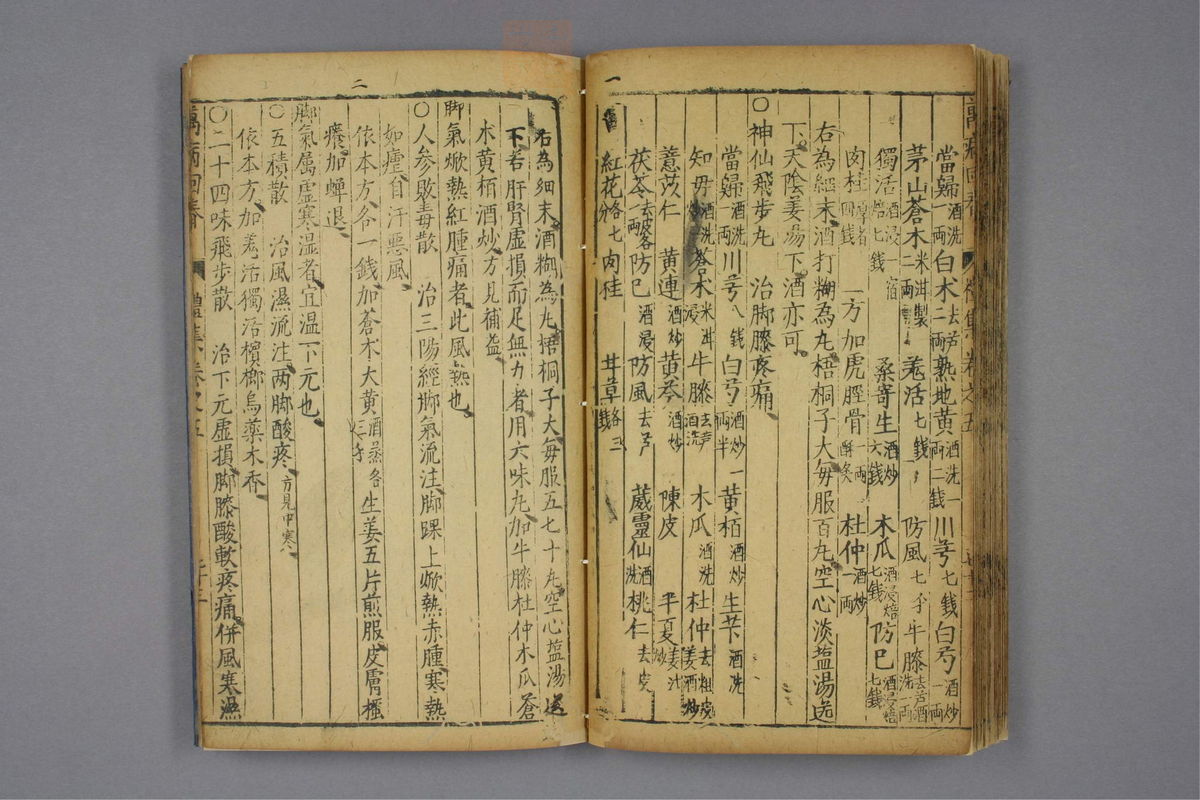 一
當歸酒洗一兩 白朮去芦二兩 熟地黄酒洗一兩二錢 川芎七錢 白芍酒炒一兩
茅山蒼朮米泔製二兩 羗活七錢 防風七錢 牛膝去芦酒洗一兩
獨活酒浸一宿焙七錢 桑寄生酒炒六錢 木瓜酒浸焙七錢 防巳酒浸焙七錢
肉桂四錢 一方加虎脛骨酥炙一兩 杜仲酒炒一兩
右為細末酒打糊為丸梧桐子大每服百丸空心淡塩湯送
下天陰姜湯下酒亦可
○神仙飛步丸 治脚膝疼痛
當歸酒洗一兩 川芎八錢 白芍酒炒一兩半 黄栢酒炒 生芐酒洗
知母酒洗炒 蒼朮米泔浸 牛膝去芦酒洗 木瓜酒洗 杜仲去粗皮姜酒炒
薏苡仁 黄連酒炒 黄芩酒炒 陳皮 半夏姜汁炒
茯苓去皮各一兩 防巳酒浸 防風去芦 葳靈仙酒洗 桃仁去皮
紅花各七分 肉桂 甘草各三錢
二
右為細末酒糊為丸梧桐子大每服五七十丸空心塩湯送
下若肝腎虚損而足無力者用六味丸加牛膝杜仲木瓜蒼
朮黄栢酒炒方見補益
脚氣焮熱紅腫痛者此風熱也
○人參敗毒散 治三陽經脚氣流注脚踝上焮熱赤腫寒熱
如瘧自汗惡風
依本方各一錢加蒼朮大黄酒蒸各三分生姜五片煎服皮膚搔
癢加蟬退
脚氣属虚寒湿者宜温下元也
○五積散 治風濕流注两脚酸疼方見中寒
依本方加羗活獨活檳榔烏藥木香
○二十四味飛步散 治下元虚損脚膝酸軟疼痛併風寒濕
萬病回春